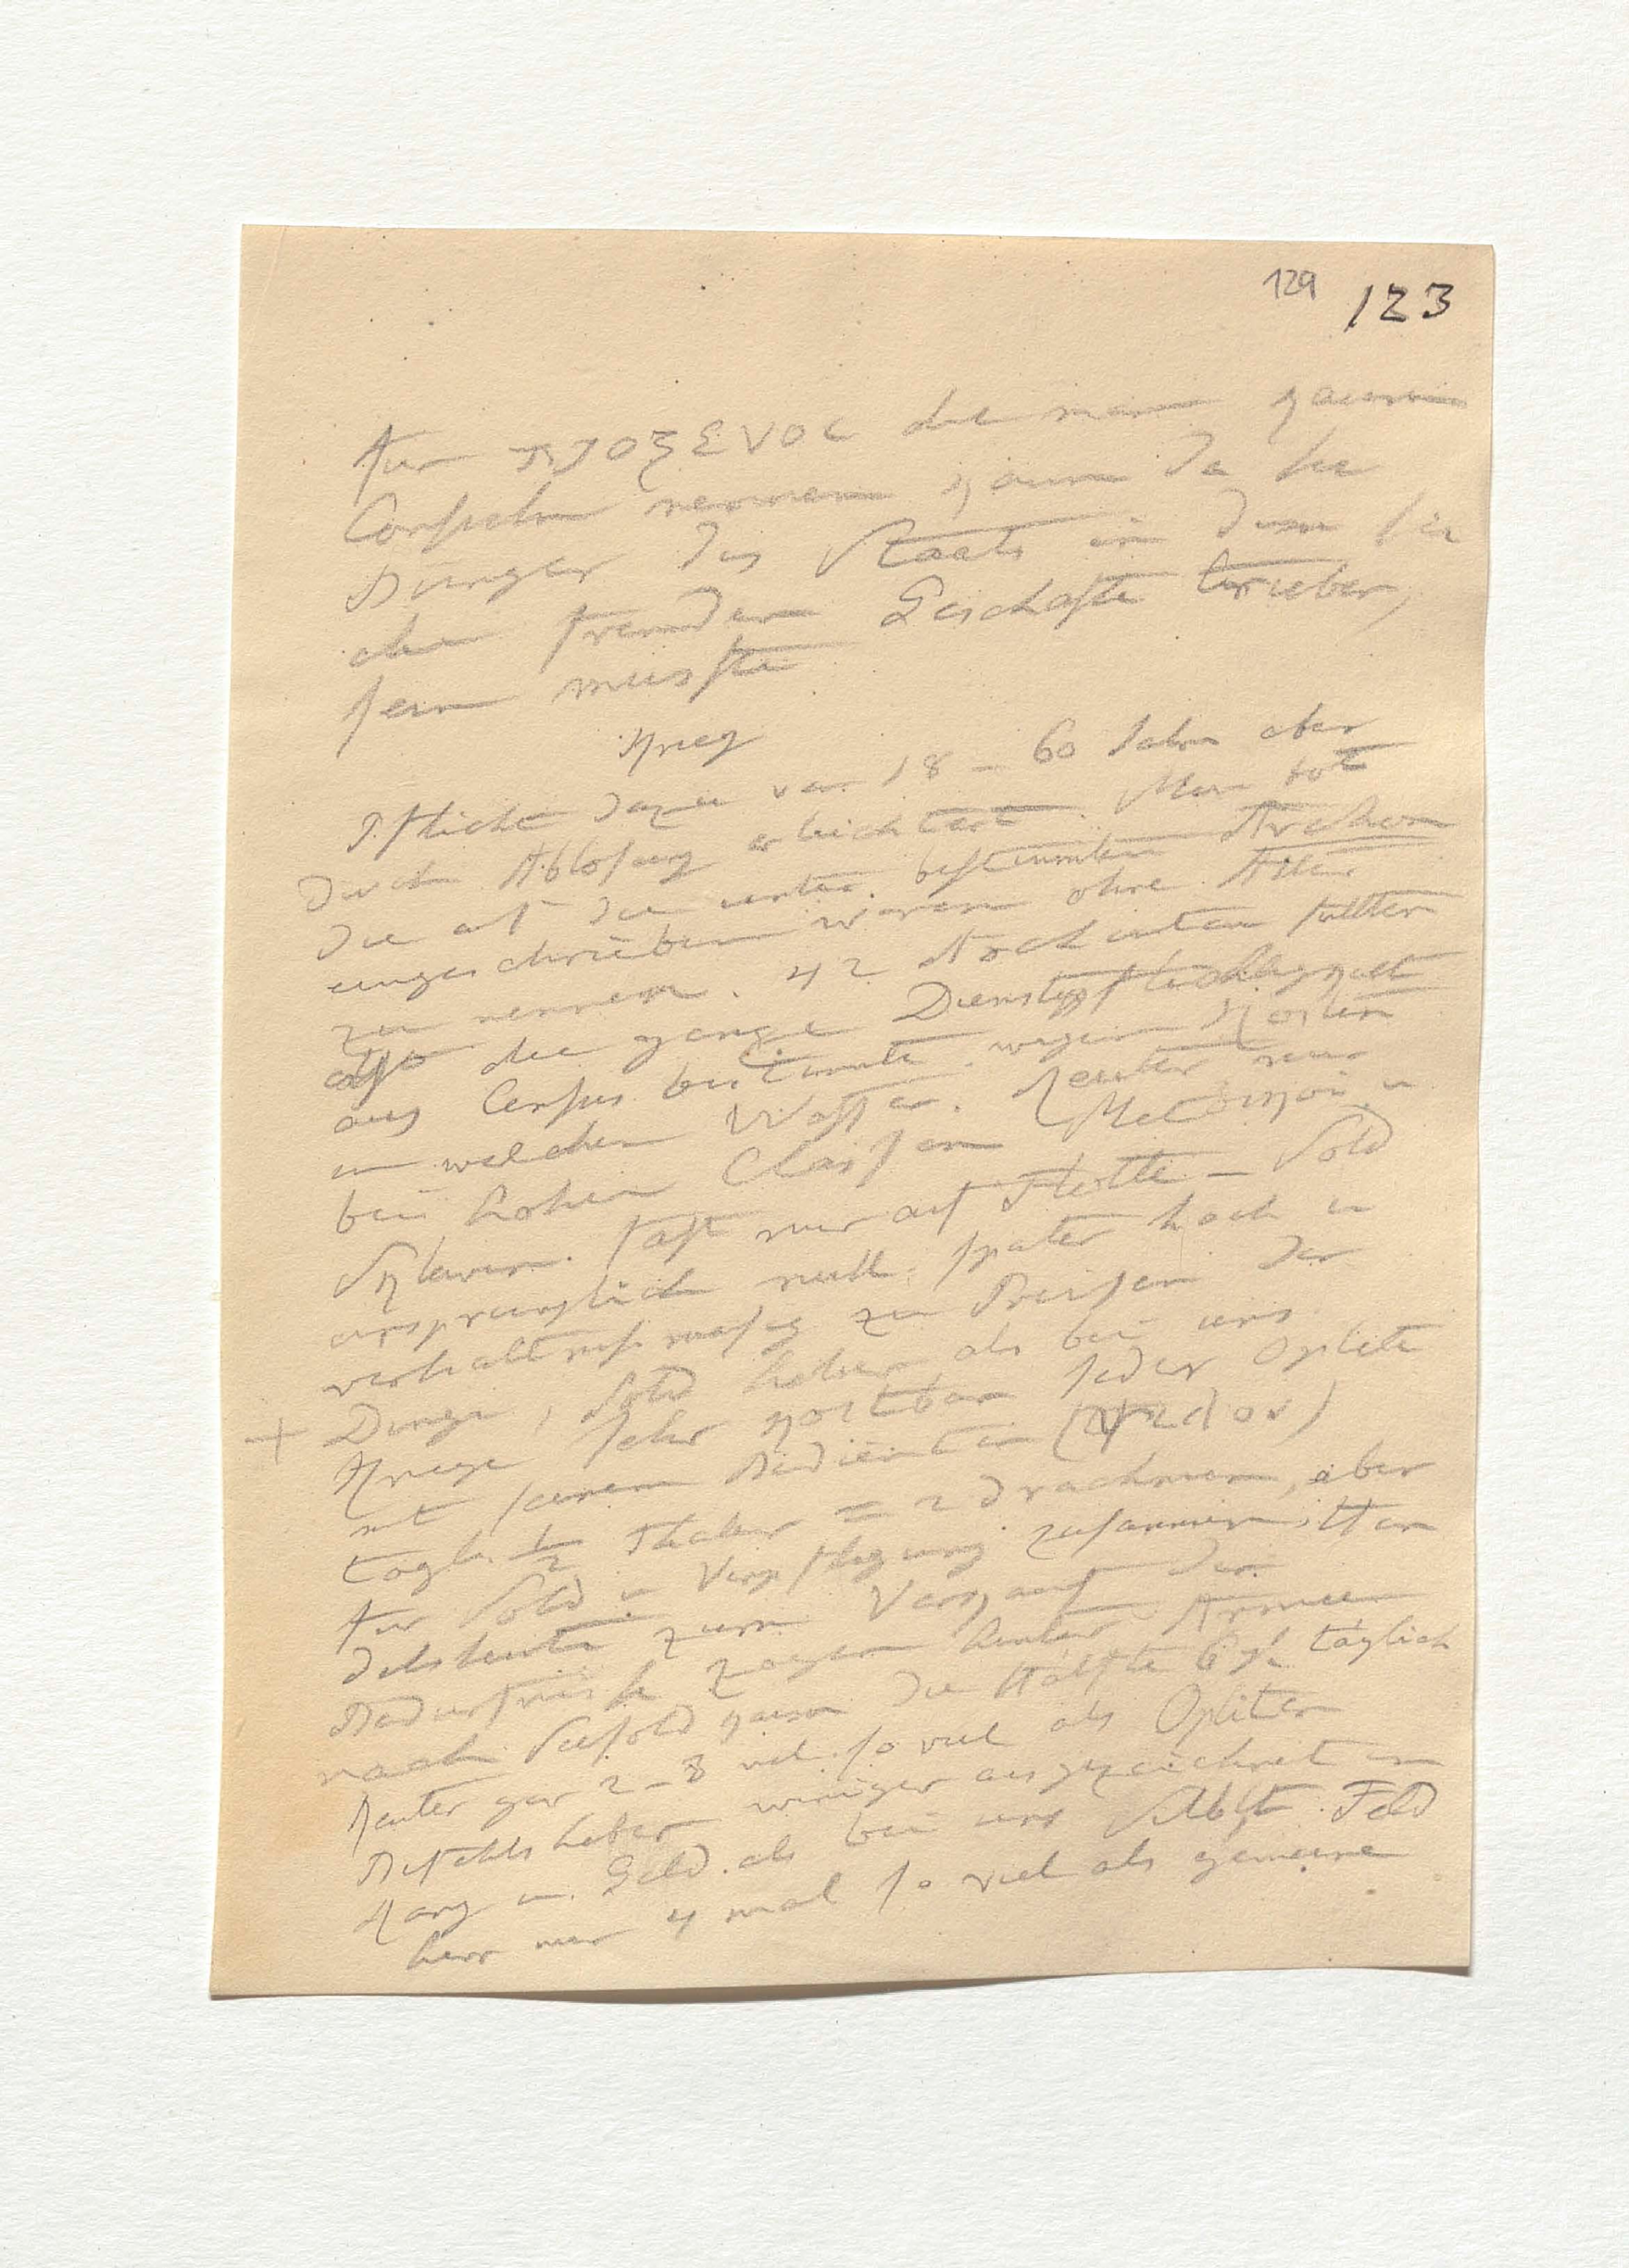 129 123
für προξενος die man kaum
Consuln nennen kann da sie
Bürger des Staats in dem sie
die fremden Geschäfte trieben,
sein musste
Krieg
Pflicht dazu von 18 – 60 Jahr aber
durch Ablösung erleichtert. Man
die auf die unter bestimmten Archon
eingeschrieben waren ohne
zu nennen. 42 Archonten sollten
also die ganze Dienstpflichtigkeit
aus Census bestimmte wegen Kosten
in welchen Waffen. Reuter nur
bei hohen Classen u
Sklaven. fast nur auf Flotte – Sold
ursprünglich null, später hoch u
verhältnissmäsig zu Preisen der
+ Dinge, Sold höher als bei uns
Kriege sehr kostbar jeder Oplite
mit seinem Bedienten
tägl. 1/2 Thaler = 2 drachmen, aber
für Sold u Verpflegung zusammen. Han
delsleute zum Verkauf der
Bedürfnisse zogen hinter Armeen
nach Seesold kaum die Hälfte täglich
Reuter gar 2–3 mal so viel als Opliten
Befehlshaber weniger ausgezeichnet in
Rang u. Geld als bei uns selbst Feld
herr nur 4 mal so viel als gemeine